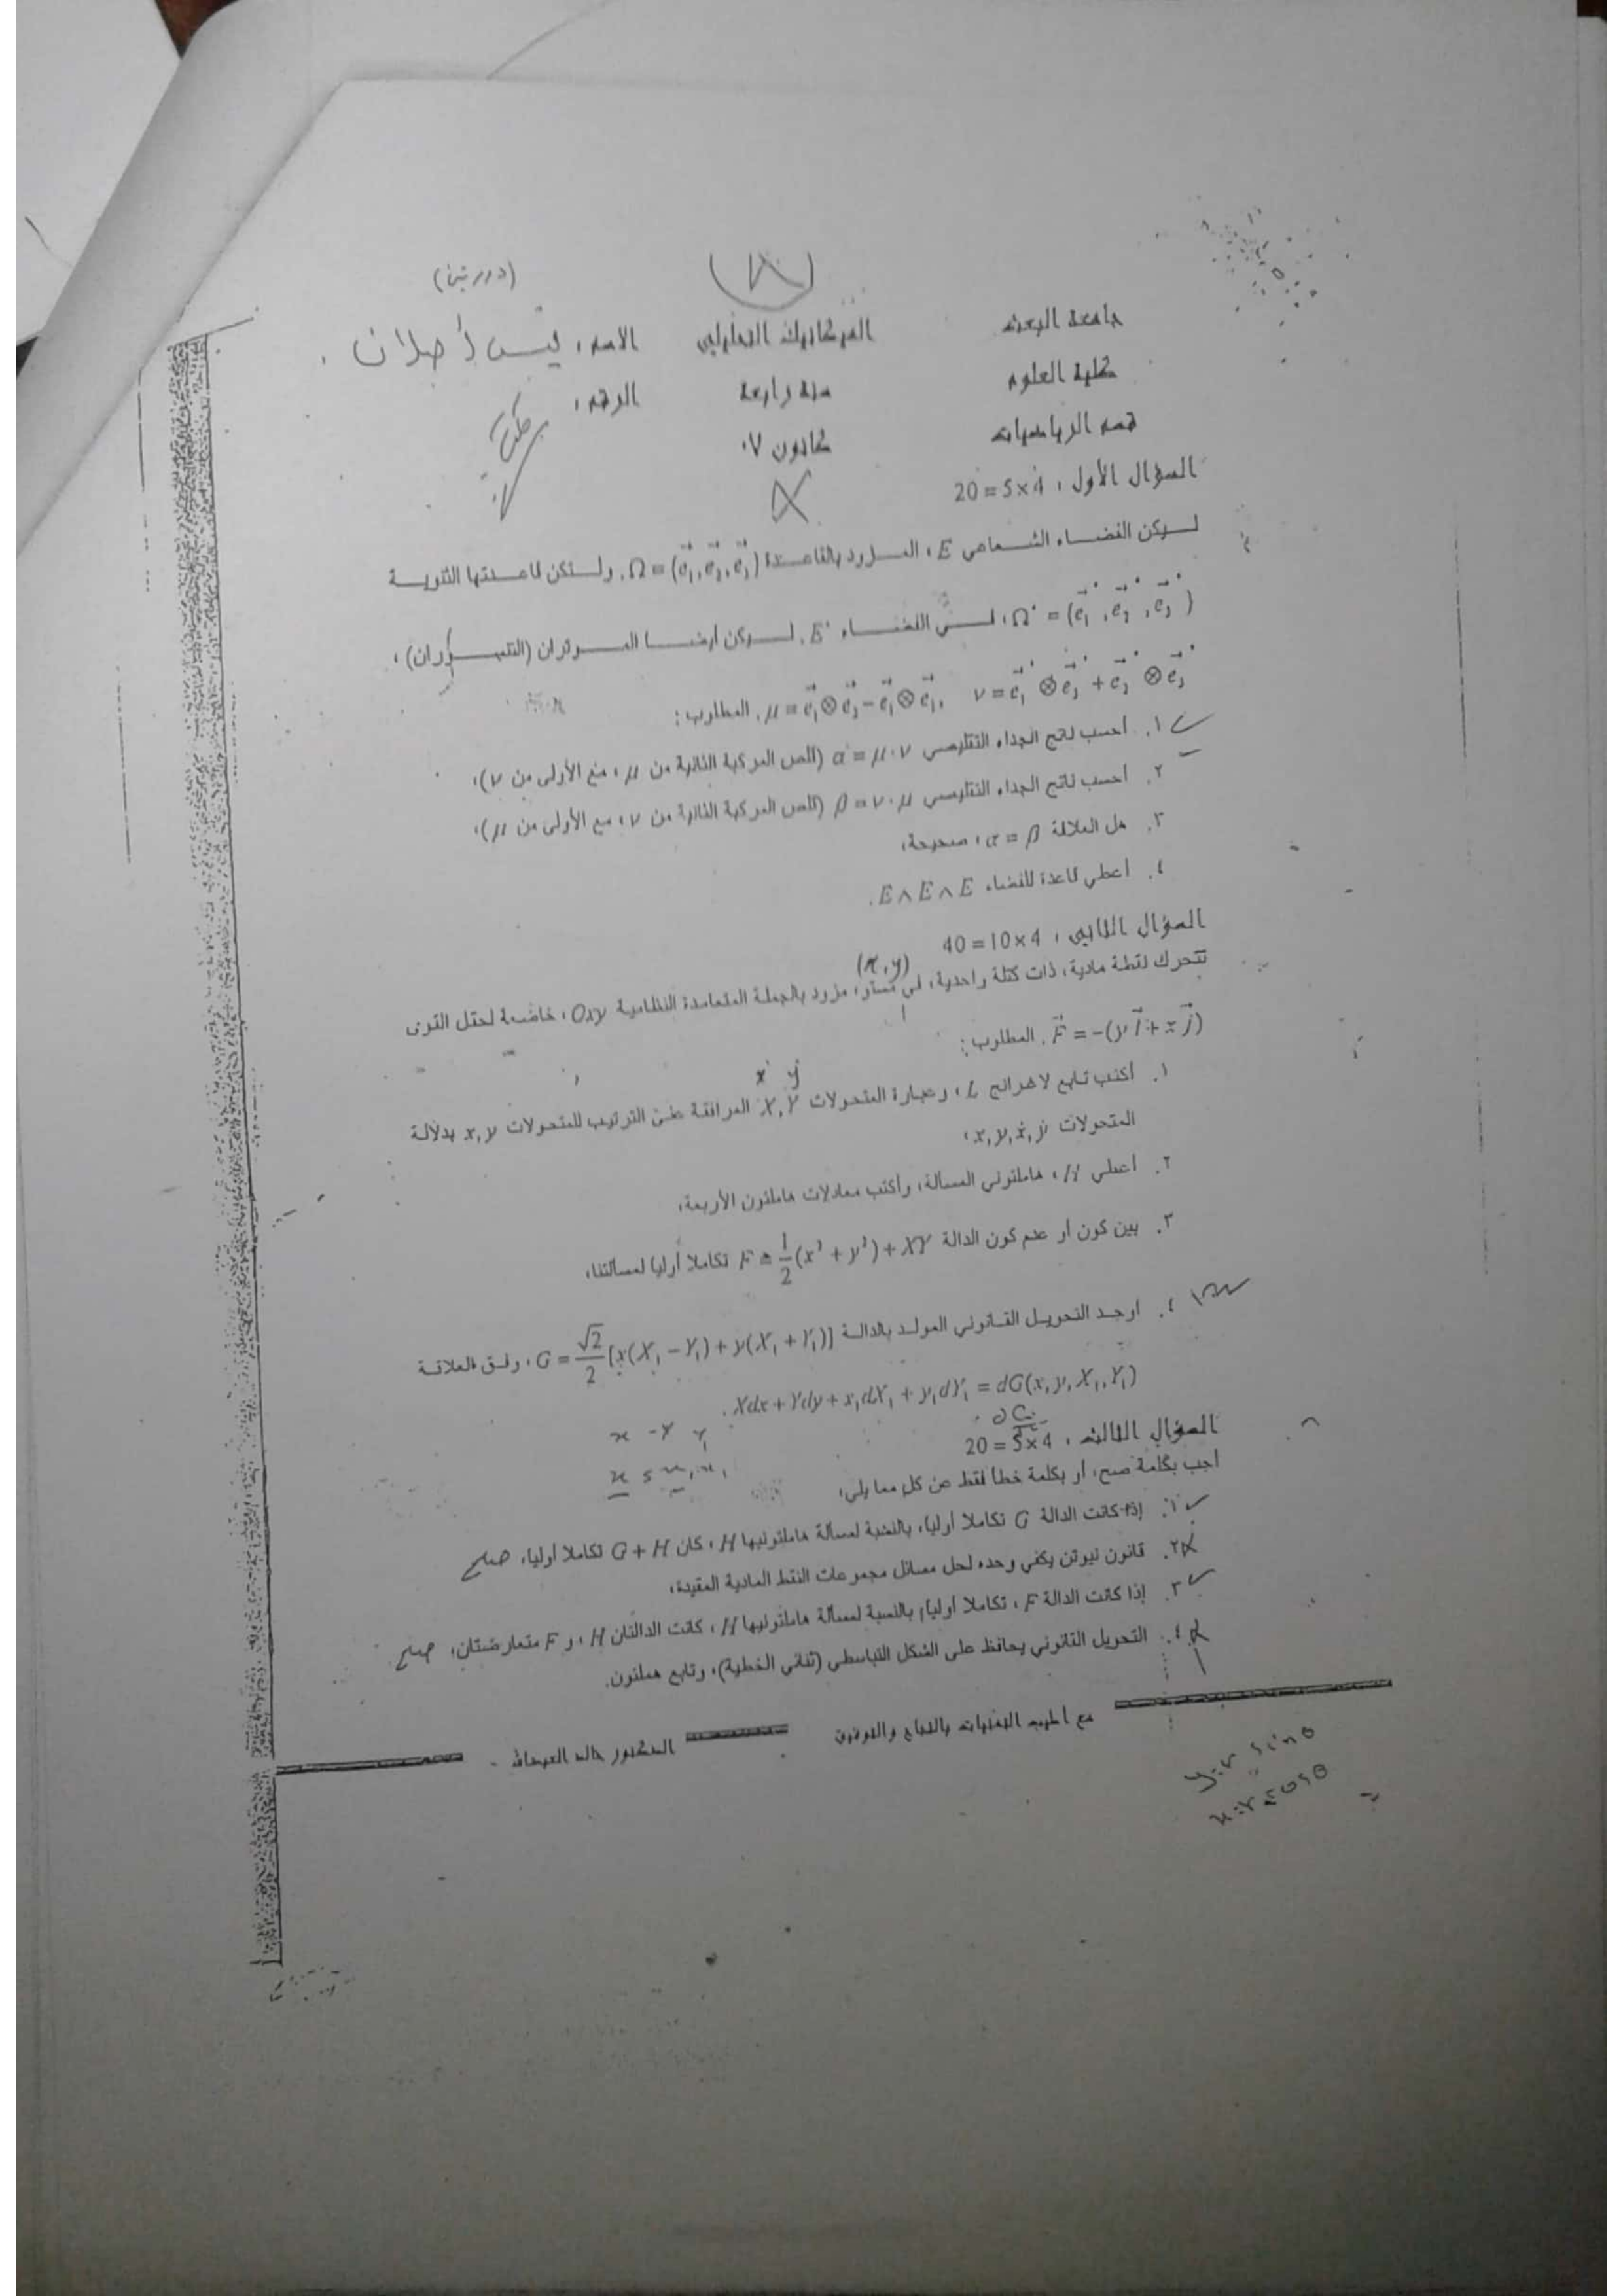 (دورتين)
جامعة البعث الميكانيك التحليلي الاسم :
كلية العلوم سنة رابعة الرقم :
قسم الرياضيات كانون ٠٧
السؤال الأول : 4×5=20
ليكن الفضاء الشعاعي E ، المزود بالقاعدة Ω = (e₁, e₂, e₃) ، ولتكن قاعدتها الثنوية
Ω* = (e₁*, e₂*, e₃*) ، في الفضاء E* . ليكن أيضا الموتران (التنسوران) ،
المطلوب :
١. أحسب ناتج الجداء التقليصي α = μ·ν (قلص المركبة الثانية من μ ، مع الأولى من ν) ،
٢. أحسب ناتج الجداء التقليصي β = ν·μ (قلص المركبة الثانية من ν ، مع الأولى من μ) ،
٣. هل العلاقة α = β ، صحيحة،
٤. أعطي قاعدة للفضاء E∧E∧E .
السؤال الثاني : 4×10=40
(x, y)
تتحرك نقطة مادية، ذات كتلة واحدية، في مستو، مزود بالجملة المتعامدة النظامية Oxy ، خاضعة لحقل القوى
F = −(y i + x j) . المطلوب :
١. أكتب تابع لاغرانج L ، وعبارة المتحولات X, Y المرافقة على الترتيب للمتحولات x, y بدلالة
المتحولات x, y, ẋ, ẏ ،
٢. أعطي H ، هاملتوني المسألة، وأكتب معادلات هاملتون الأربعة،
٣. بين كون أو عدم كون الدالة F = 1/2 (x² + y²) + XY تكاملا أوليا لمسألتنا،
٤. أوجد التحويل القانوني المولد بالدالة G = √2/2 [x(X₁ − Y₁) + y(X₁ + Y₁)] ، وفق العلاقة
Xdx + Ydy + x₁dX₁ + y₁dY₁ = dG(x, y, X₁, Y₁) .
السؤال الثالث : 4×5=20
أجب بكلمة صح، أو بكلمة خطأ فقط عن كل مما يلي،
١. إذا كانت الدالة G تكاملا أوليا، بالنسبة لمسألة هاملتونيها H ، كان G + H تكاملا أوليا، صح
٢. قانون نيوتن يكفي وحده لحل مسائل مجموعات النقط المادية المقيدة،
٣. إذا كانت الدالة F ، تكاملا أوليا، بالنسبة لمسألة هاملتونيها H ، كانت الدالتان H ، و F متعارضتان، صح
٤. التحويل القانوني يحافظ على الشكل التباسطي (ثنائي الخطية)، وتابع هملتون.
مع أطيب التمنيات بالنجاح والتوفيق الدكتور خالد
y=r sin θ
x=r cos θ